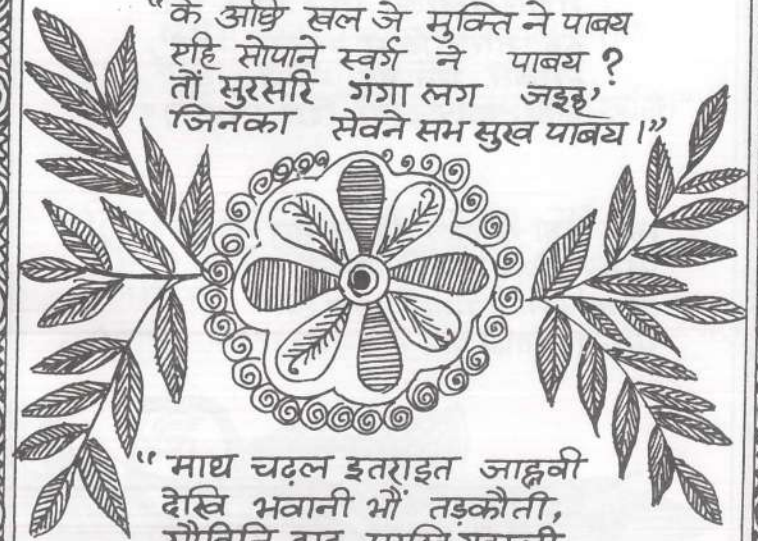 “के अछि खल जे मुक्ति ने पाबय
एहि सोपाने स्वर्ग ने पाबय ?
तौं सुरसरि गंगा लग जइह'
जिनका सेवने सभ सुख पाबय ।”
“माथ चढ़ल इतराइत जाह्नवी
देखि भवानी भौं तड़कौती,